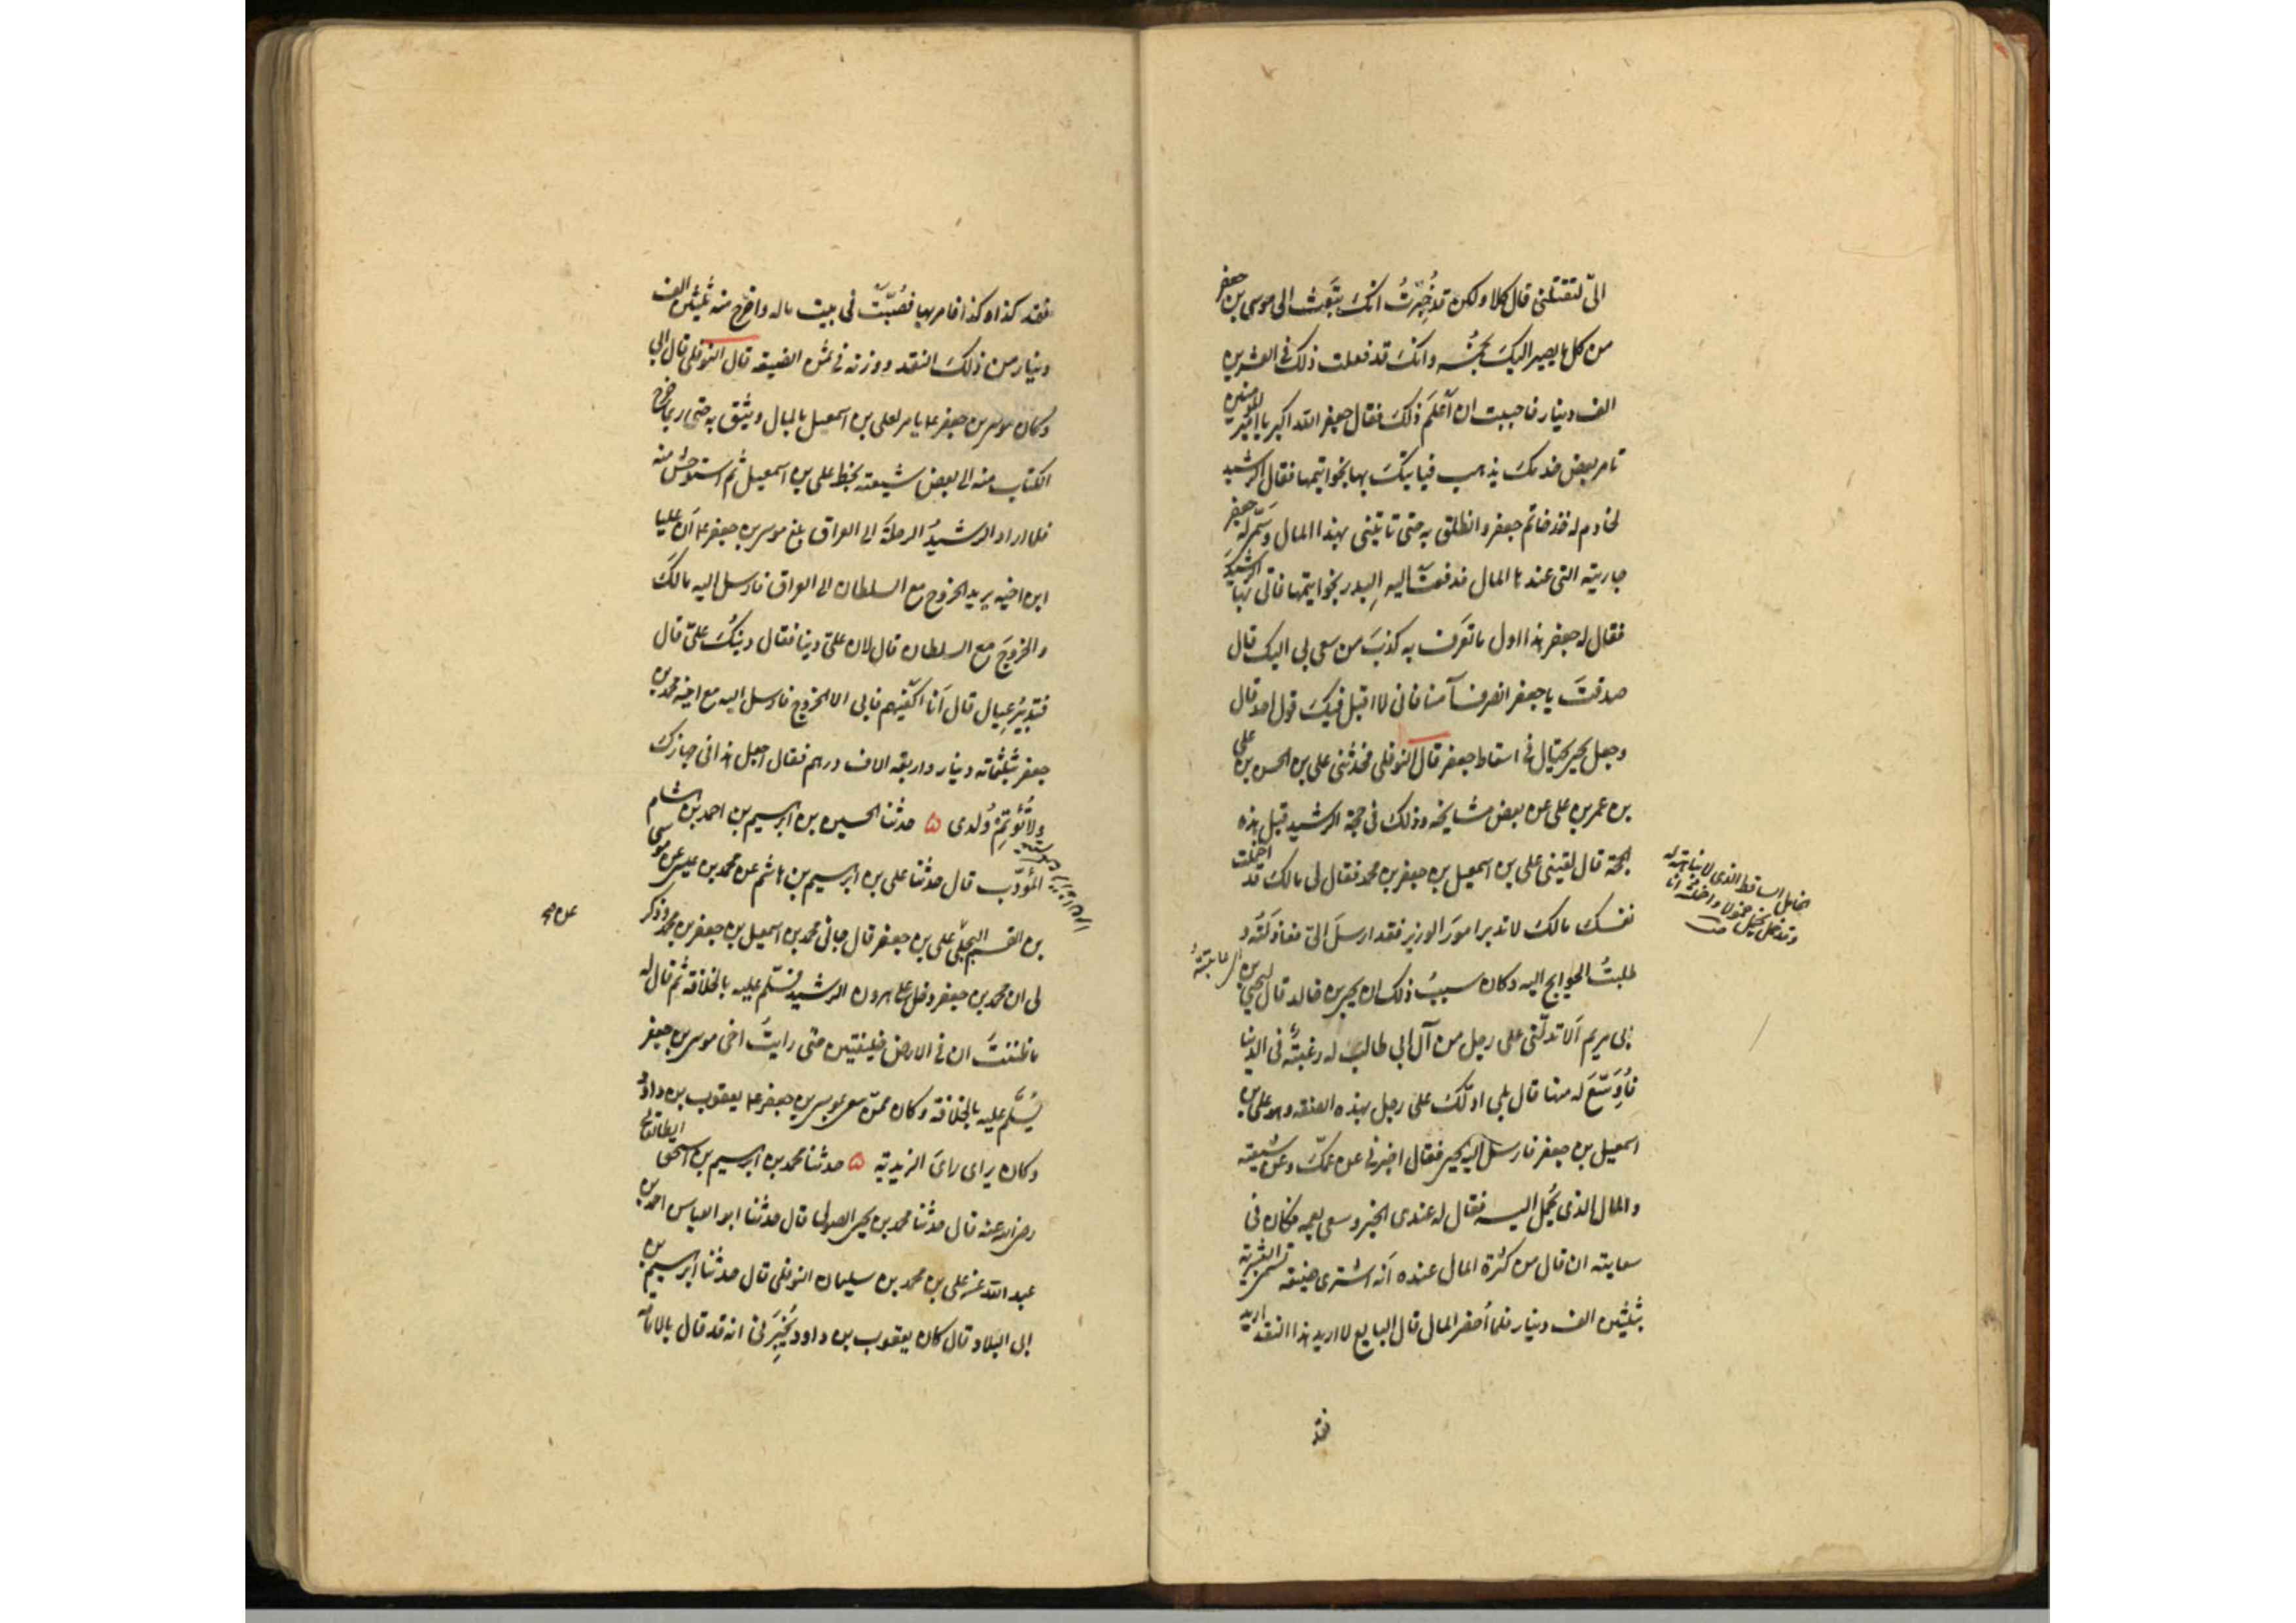 اليّ لتقتلني قال كلا ولكن قد خُبّرتُ انكَ تبعَث الى موسى بن جعفر
من كل ما يصير اليكَ بخُمسه وانكَ قد فعلت ذلك في العشرين
الف دينار فاحببت ان اَعلَمَ ذلكَ فقال جعفر الله اكبر يا امير المؤمنين
تامر بعض خدمك يذهب فياتيكَ بها بخواتيمها فقال الرشيد
لخادم له خذ خاتم جعفر وانطلق به حتى تاتيني بهذا المال وسَمّى له جعفر
جاريته التي عندها المال فدفعتْ اليه البدر بخواتيمها فاتى بها الرشيدَ
فقال له جعفر هذا اول ما تعرَف به كذبَ من سعى بي اليك قال
صدقتَ يا جعفر انصرف آمنا فاني لا اقبل فيكَ قول احد قال
وجعل يحيى يحتال في اسقاط جعفر قال النوفلي فحدثني علي بن الحسن بن علي
بن عمر بن علي عن بعض مشايخه وذلك في حجة الرشيد قبل هذه
الحجة قال لقيني علي بن اسمعيل بن جعفر بن محمد فقال لي مالك قد اخملت
نفسك مالك لا تدبر امورَ الوزير فقد ارسلَ اليّ فعادلتُه و
طلبتُ الحوايج اليه وكان سببُ ذلك ان يحيى بن خالد قال ليحيى بن
ابي مريم اَلا تدلّني على رجل من آل ابي طالب له رغبةٌ في الدنيا
فاُوَسّعَ له منها قال بلى ادلّكَ على رجل بهذه الصفة وهو علي بن
اسمعيل بن جعفر فارسل اليه يحيى فقال اخبرني عن عمّكَ وعن شيعته
والمال الذي يُحمل اليه فقال له عندي الخبر وسعى بعمه فكان في
سعايته ان قال من كثرة المال عنده اَنه اشترى ضيعة تسمى البشرية
بثلثين الف دينار فلما اُحضر المال قال البايع لا اريد هذا النقد اريد
فقد
نقد كذا وكذا فامر بها فصُبّتْ في بيت ماله واخرج منه ثلثين الف
دينار من ذلكَ النقد ووزنه في ثمن الضيعة قال النوفلي قال ابي
وكان موسى بن جعفر ع يامر لعلي بن اسمعيل بالمال ويثق به حتى ربما خرج
الكتاب منه الى بعض شيعته بخط علي بن اسمعيل ثم استوحش منه
فلما اراد الرشيدُ الرحلةَ الى العراق بلغ موسى بن جعفر ع اَن عليا
ابن اخيه يريد الخروج مع السلطان الى العراق فارسل اليه مالكَ
والخروجَ مع السلطان قال لان عليّ دينا فقال دينُكَ عليّ قال
فتدبيرُ عيالي قال اَنا اكفيهم فابى الا الخروج فارسل اليه مع اخيه محمد بن
جعفر بثلثمائة دينار واربعة الاف درهم فقال اجعل هذا في جهازكَ
ولا تُؤتِمْ وُلدي ۵ حدثنا الحسين بن ابرهيم بن احمد بن هشام
المؤدّب قال حدثنا علي بن ابرهيم بن هاشم عن محمد بن عيسى عن موسى
بن القسم البجلّي علي بن جعفر قال جاني محمد بن اسمعيل بن جعفر بن محمد وذكر
عن صح
لي ان محمد بن جعفر دخل على هرون الرشيد فسلّم عليه بالخلافة ثم قال له
ما ظننتُ ان في الارض خليفتين حتى رايتُ اخي موسى بن جعفر
يُسَلَّم عليه بالخلافة وكان ممّن سعى بموسى بن جعفر ع يعقوب بن داود
وكان يراى راىَ الزيدية ۵ حدثنا محمد بن ابرهيم بن اسحق الطالقاني
رضي الله عنه قال حدثنا محمد بن يحيى الصولي قال حدثنا ابو العباس احمد بن
عبد الله عن علي بن محمد بن سليمان النوفلي قال حدثنا ابرهيم بن
ابي البلاد قال كان يعقوب بن داود يُخبِرني انه قد قال بالامامة